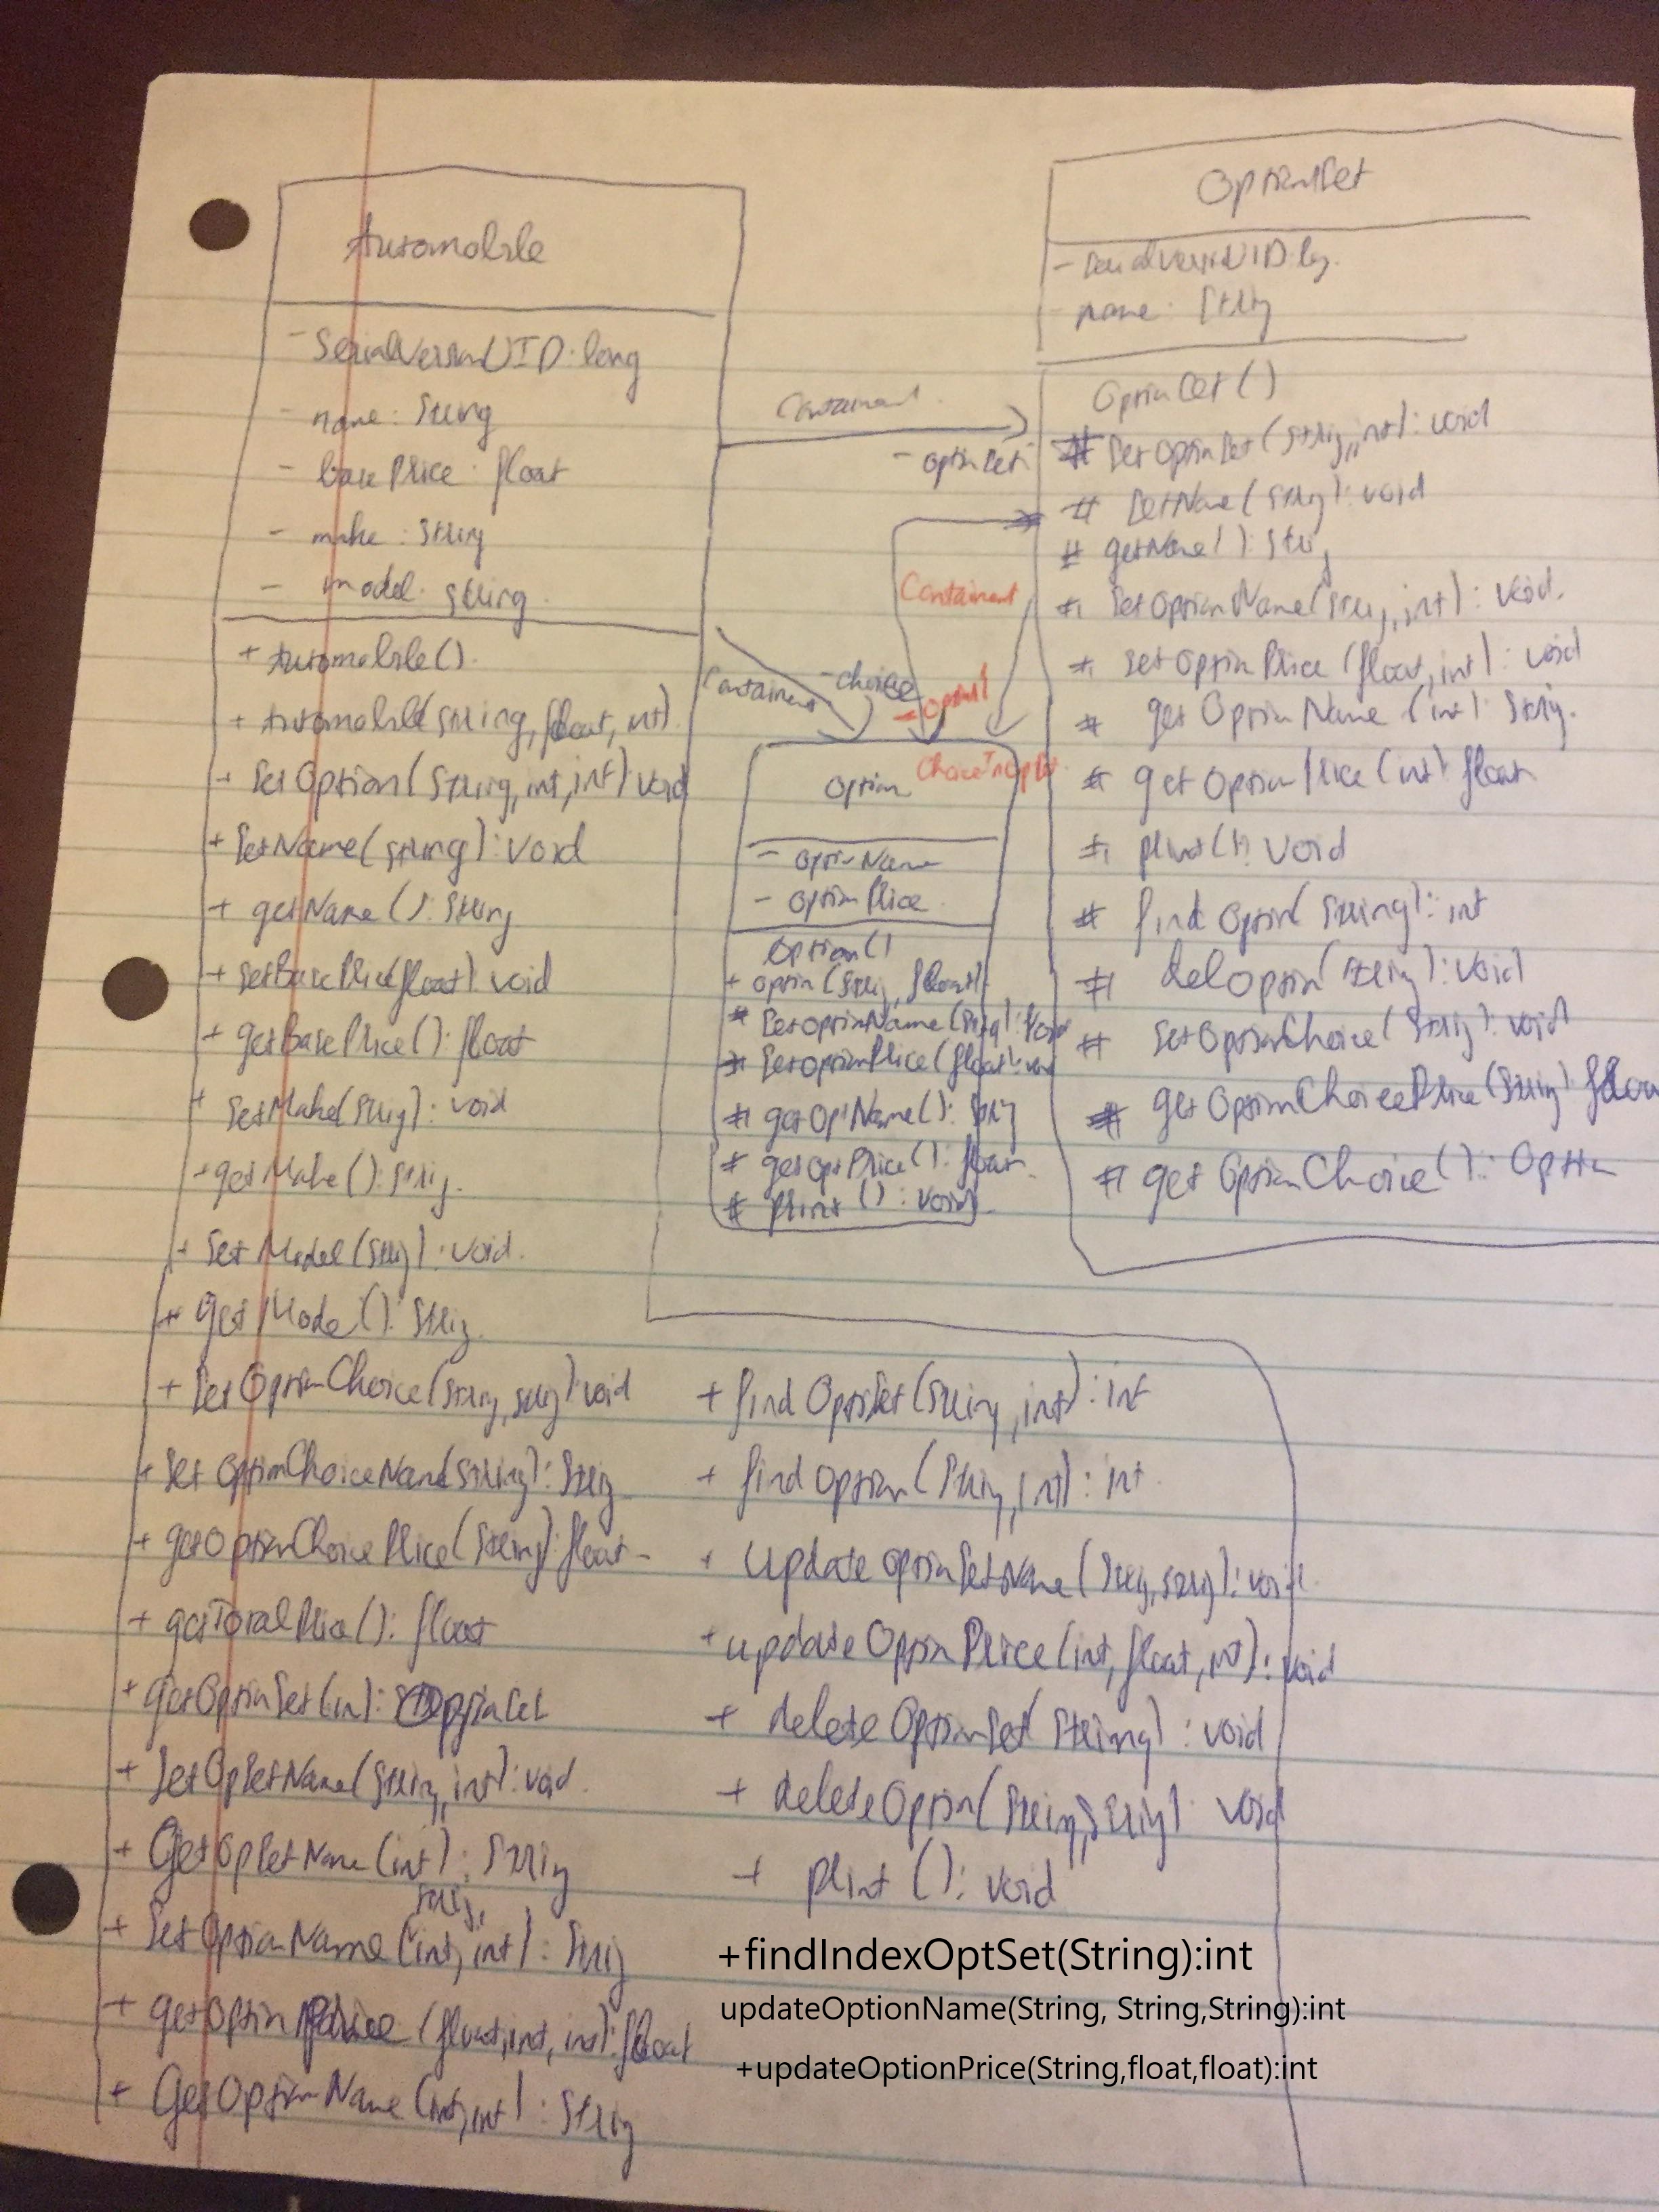 Automobile
- SerialVersionUID: long
- name: String
- basePrice: float
- make: String
- model: String
+ Automobile()
+ Automobile(String, float, int)
+ SetOption(String, int, int): void
+ SetName(String): void
+ getName(): String
+ SetBasePrice(float): void
+ getBasePrice(): float
+ SetMake(String): void
+ getMake(): String
+ Set Model(String): void
+ get Model(): String
+ SetOptionChoice(String, String): void
+ Set OptionChoiceName(String): String
+ getOptionChoicePrice(String): float
+ getTotalPrice(): float
+ getOptionSet(int): OptionSet
+ SetOpSetName(String, int): void
+ GetOpSetName(int): String
String,
+ SetOptionName(int, int): String
+ getOption Price (float, int, int): float
+ GetOptionName(int, int): String
+ find OptSet(String, int): int
+ find Option(String, int): int
+ update OptionSetName(String, String): void
+ update OptionPrice(int, float, int): void
+ delete OptionSet(String): void
+ delete Option(String, String): void
+ print(): void
+findIndexOptSet(String):int
updateOptionName(String, String,String):int
+updateOptionPrice(String,float,float):int
Containment
- OptionSet
Containment
- choice
Containment
- option1
ChoiceInOptSet
Option
- optionName
- optionPrice
Option()
+ option(String, float)
# SetOptionName(String): void
# SetOptionPrice(float): void
# getOpName(): String
# getOptPrice(): float
# print(): void
OptionSet
- SerialVersionUID: long
- name: String
OptionSet()
# SetOptionSet(String, int): void
# SetName(String): void
# getName(): String
# SetOptionName(String, int): void
# SetOptionPrice(float, int): void
# getOptionName(int): String
# getOptionPrice(int): float
# print(): void
# find Option(String): int
# delOption(String): void
# SetOptionChoice(String): void
# getOptionChoicePrice(String): float
# getOptionChoice(): Option